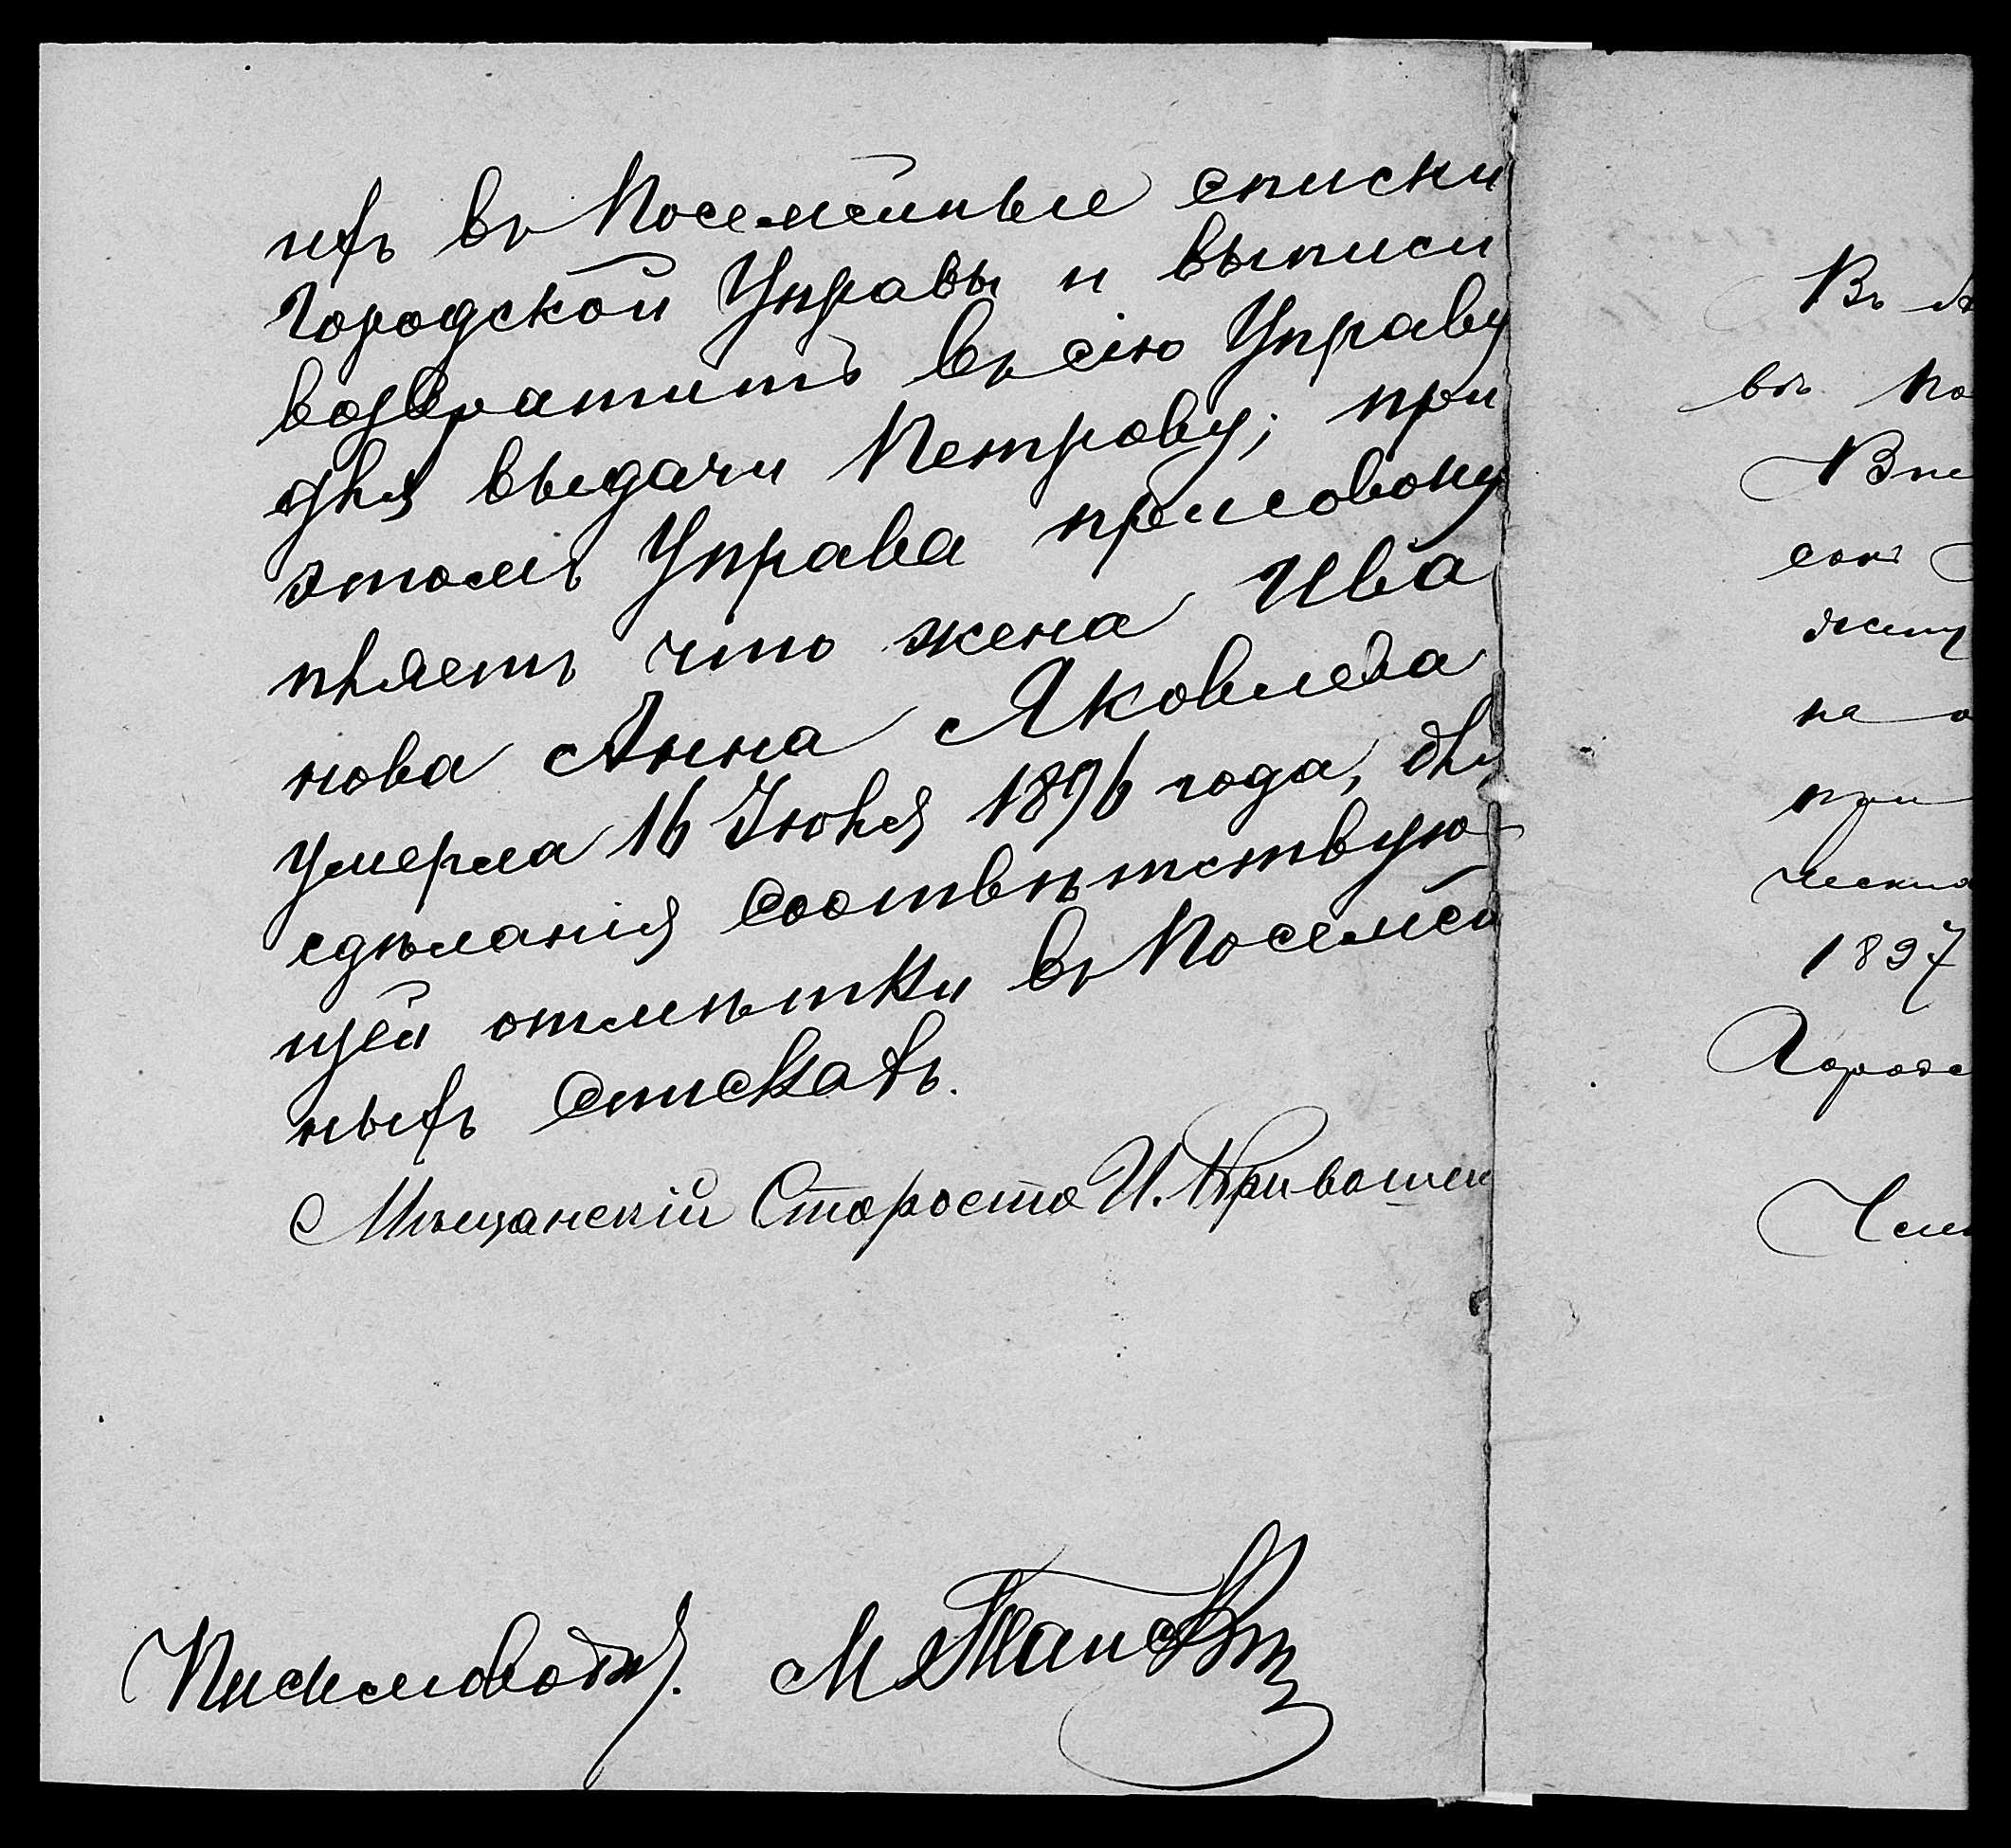 ихъ въ Посемейные списки
Городской Управы и выписи
возвратить въ сію Управу
для выдачи Петрову; при
этомъ Управа присовоку
пляетъ что жена Ива
нова Анна Яковлева
умерла 16 Іюля 1896 года, для
сдѣланія соотвѣтствую-
щей отмѣтки въ Посемей
ныхъ спискахъ.
Мѣщанскій Староста И. Кривошеи
Письмоводит. М
Въ
въ По
на
при
ческа
1897
Городс